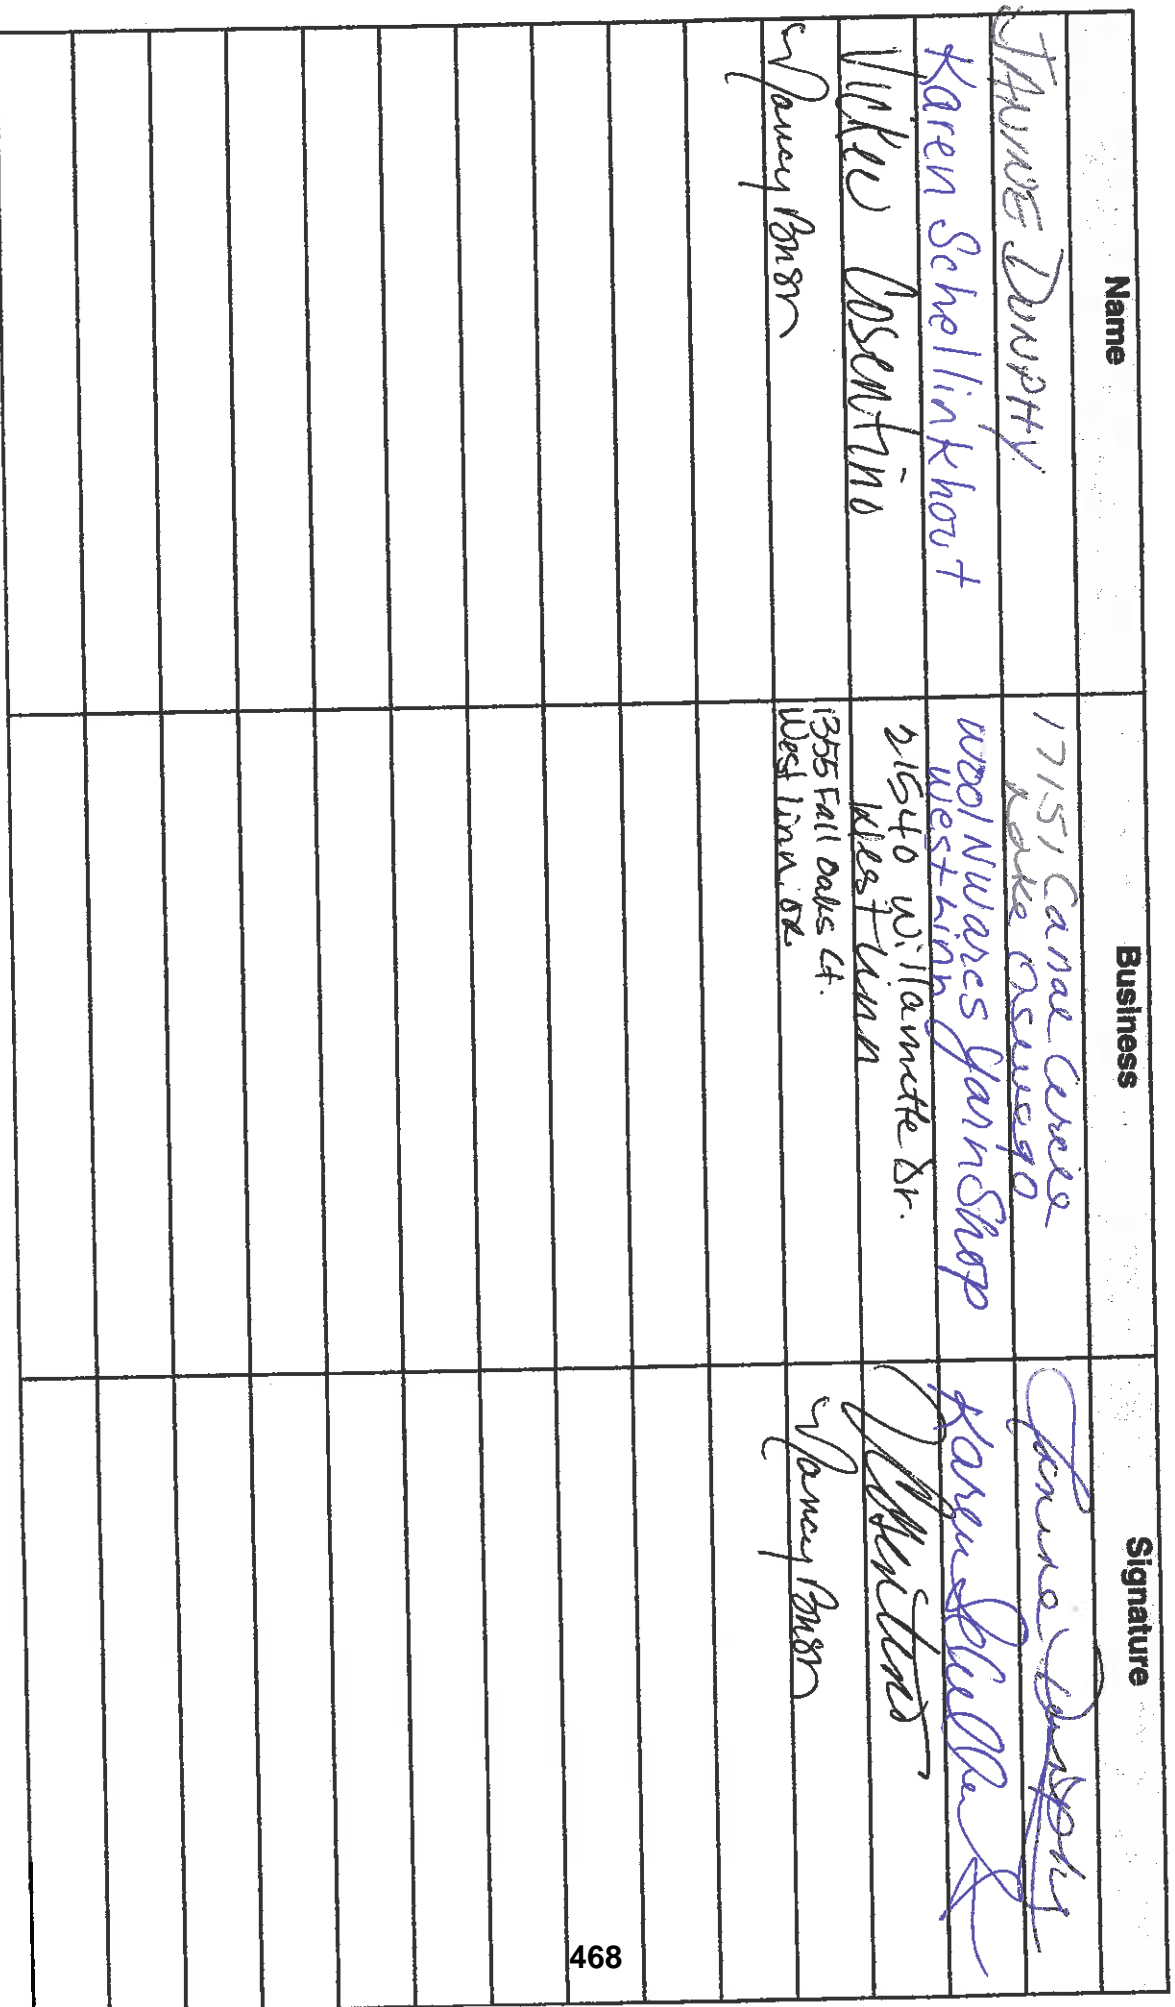 Name Business Signature
JANINE DUNPHY 17151 Canal Circle
Lake Oswego Janine Dunphy
Karen Schellinkhout Wool N Wares Yarn Shop
West Linn Karen
Vickie Cosentino 21540 Willamette Dr.
West Linn Cosentino
Nancy Bonsn 1355 Fall Oaks Ct.
West Linn, OR Nancy Bonsn
468